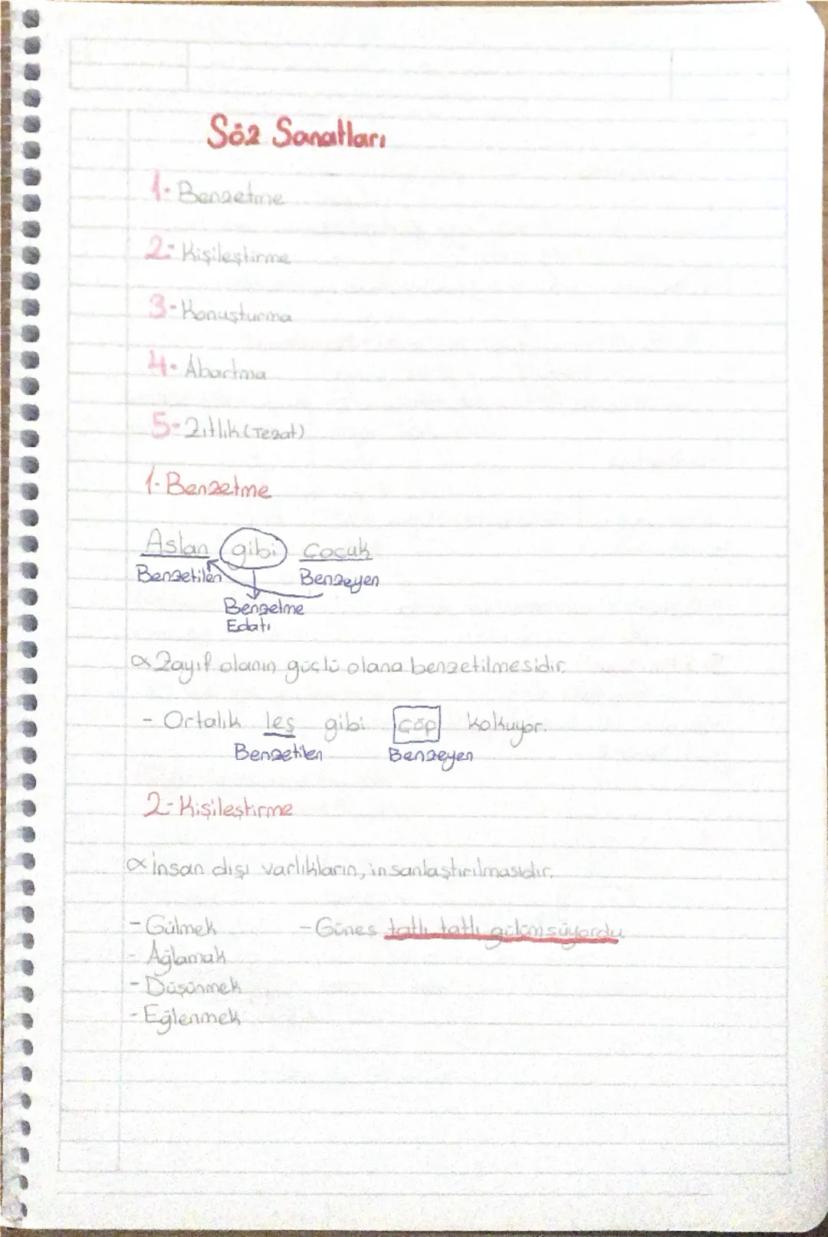 Söz Sanatları
1- Benzetme
2- Kişileştirme
3- Konuşturma
4- Abartma
5- Zıtlık (Tezat)
1- Benzetme
Aslan gibi Çocuk
Benzetilen Benzeyen
Benzetme
Edatı
α Zayıf olanın güçlü olana benzetilmesidir.
- Ortalık leş gibi çöp kokuyor.
Benzetilen Benzeyen
2- Kişileştirme
α insan dışı varlıkların, insanlaştırılmasıdır.
- Gülmek - Güneş tatlı tatlı gülümsüyordu
- Ağlamak
- Düşünmek
- Eğlenmek